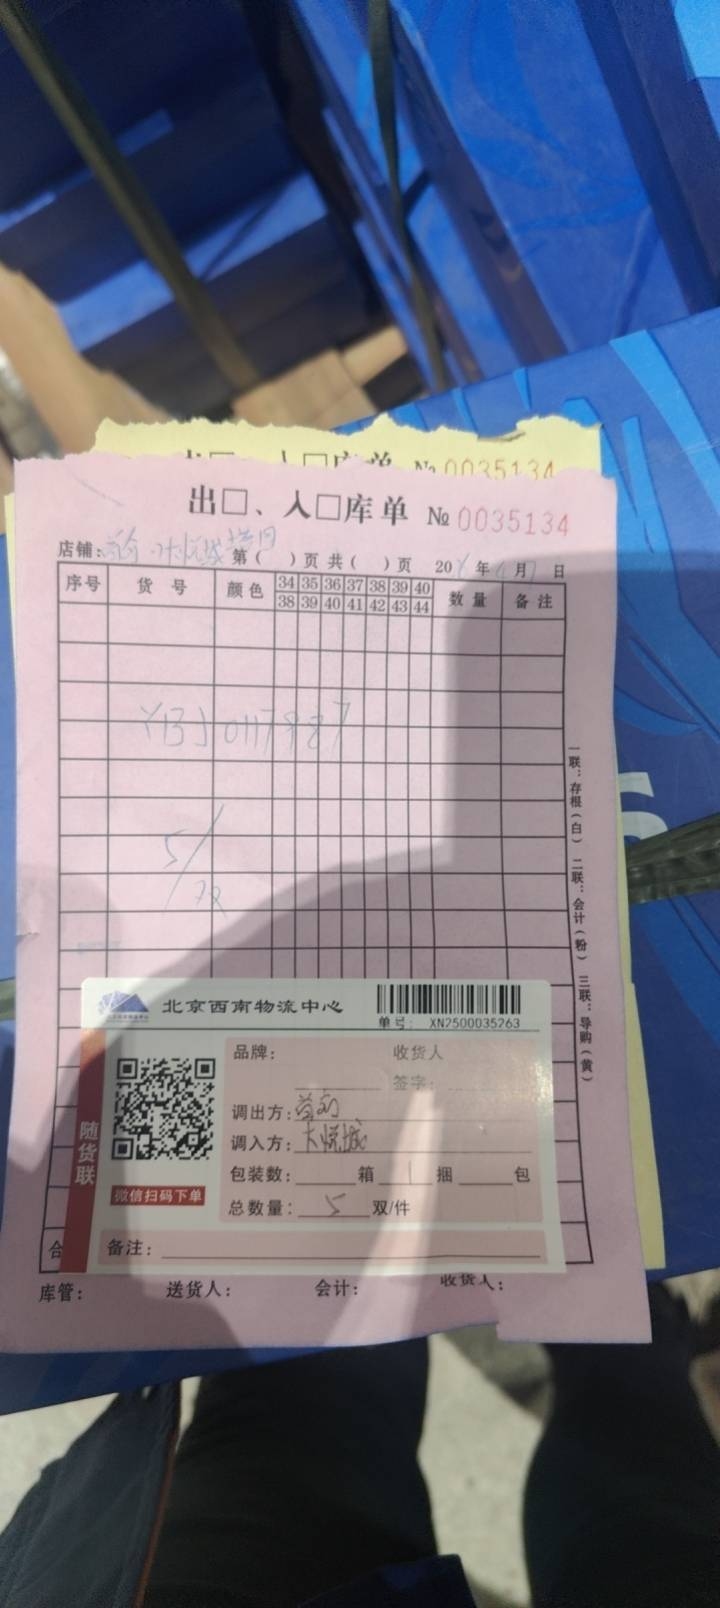 出□、入□库单 № 0035134
出□、入□库单 № 0035134
店铺: 大悦城 第( )页 共( )页 20 年 月 日
序号 货号 颜色 34 35 36 37 38 39 40 数量 备注
38 39 40 41 42 43 44
YBJ0117987
5/
双
一联:存根(白) 二联:会计(粉) 三联:导购(黄)
北京西南物流中心
单号: XN2500035263
随货联
微信扫码下单
品牌: 收货人
签字:
调出方:
调入方: 大悦城
包装数: 箱 1 捆 包
总数量: 5 双/件
备注:
合
库管: 送货人: 会计: 收货人: